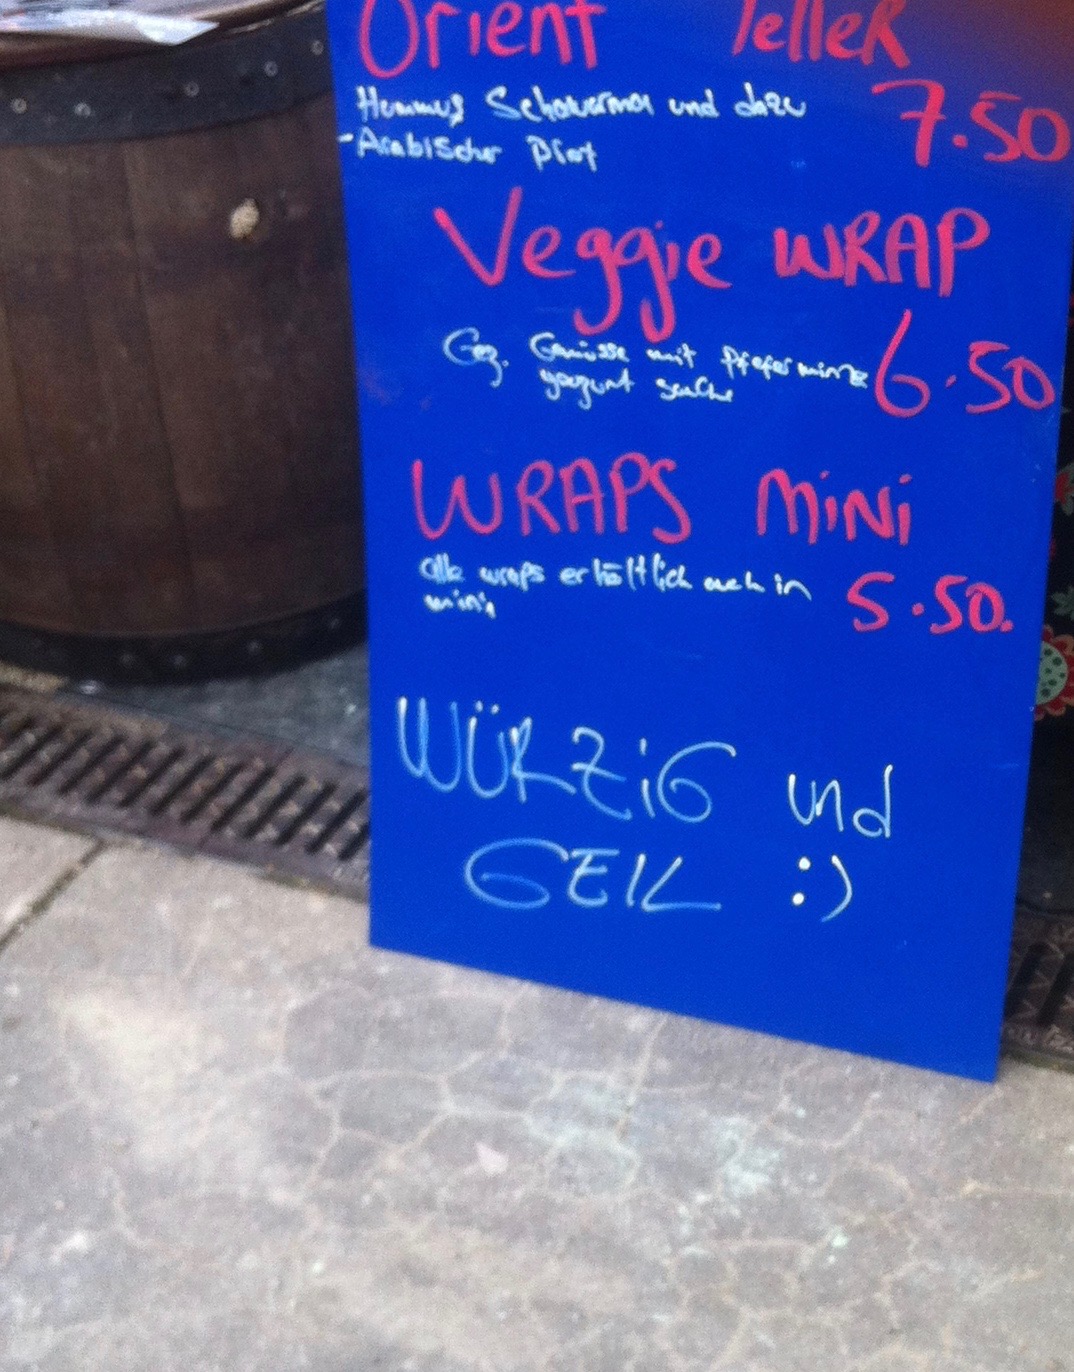 Orient Teller
Hummus Schawarma und dazu 7.50
-Arabischer Brot
Veggie WRAP
Geg. Gemüsse mit Pfefer minze 6.50
yogurt sauche
WRAPS MiNi
alle wraps erhältlich auch in 5.50.
mini,
WÜRZiG und
GEIL :)